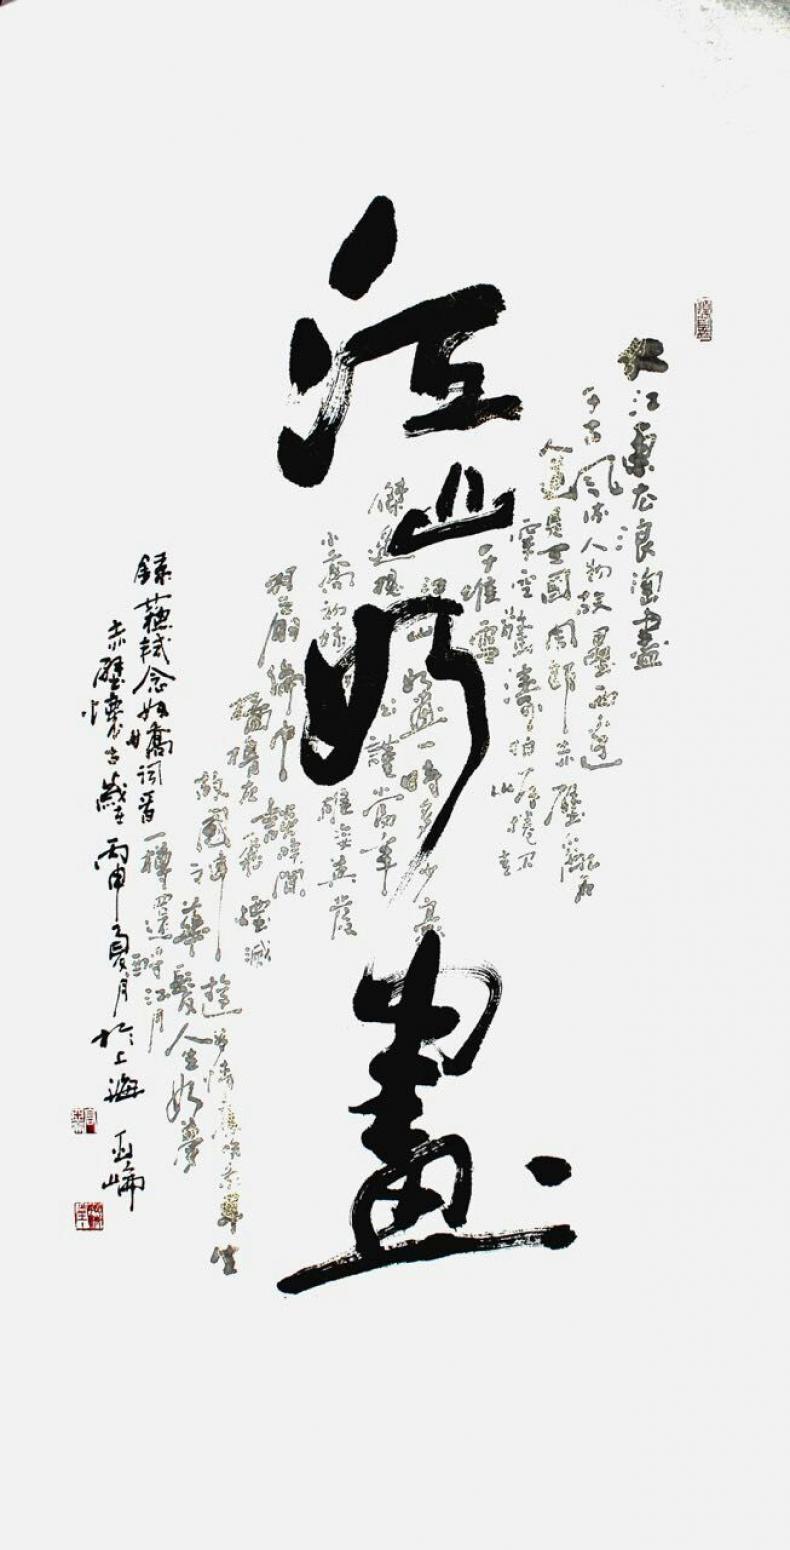 江山如畫
大江東去浪淘盡
千古風流人物故壘西邊
人道是三國周郎赤壁亂石
穿空驚濤拍岸捲起
千堆雪
江山如畫一時多少豪
傑遙想公瑾當年
小喬初嫁雄姿英發
羽扇綸巾談笑間
檣櫓灰飛煙滅
故國神遊多情應笑我早生
華髮人生如夢
一樽還酹江月
錄蘇軾念奴嬌詞
赤壁懷古歲在丙申夏月於上海